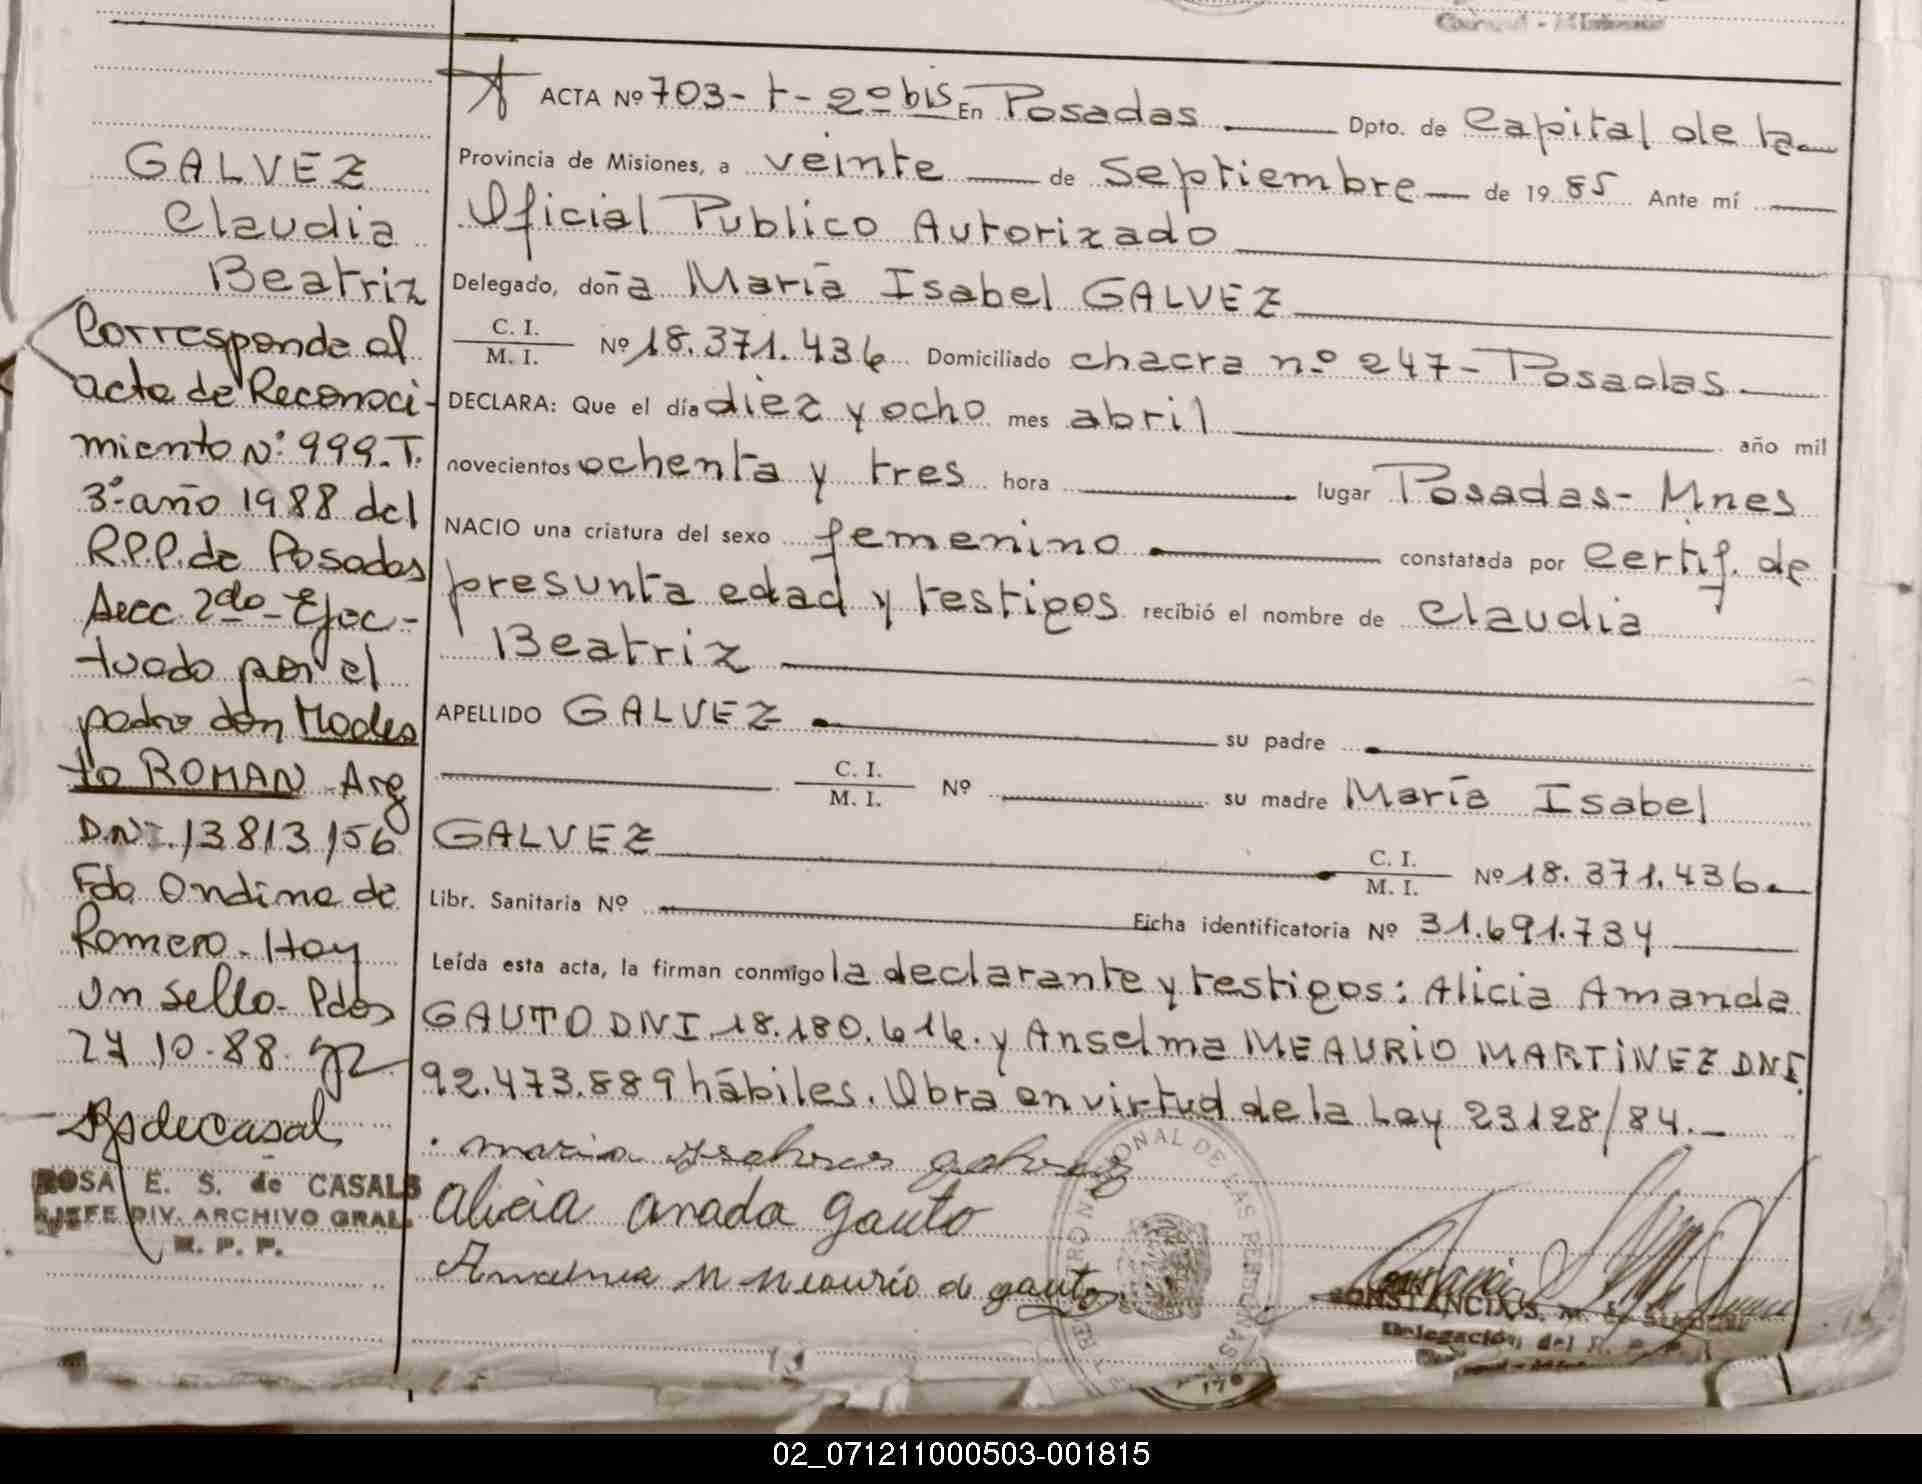 ACTA Nº 703- t - 2º bis En Posadas Dpto. de Capital de la
Provincia de Misiones, a veinte de septiembre de 1985 Ante mí
Oficial Publico Autorizado
Delegado, doña María Isabel GALVEZ
C. I.
M. I. Nº 18.371.436 Domiciliado chacra nº 247- Posadas
DECLARA: Que el día diez y ocho mes abril año mil
novecientos ochenta y tres hora lugar Posadas- Mnes
NACIO una criatura del sexo femenino constatada por Certif. de
presunta edad y testigos recibió el nombre de Claudia
Beatriz
APELLIDO GALVEZ su padre
C. I.
M. I. Nº su madre María Isabel
GALVEZ C. I.
M. I. Nº 18.371.436
Libr. Sanitaria Nº Ficha identificatoria Nº 31.691.734
Leída esta acta, la firman conmigo la declarante y testigos: Alicia Amanda
GAUTO DNI.18.180.616. y Anselma MEAURIO MARTINEZ DNI.
92.473.889 hábiles. Obra en virtud de la Ley 23128/84.
alicia amada gauto
GALVEZ
Claudia
Beatriz
Corresponde al
acta de Reconoci-
miento Nº 999.T.
3º año 1988 del
R.P.P. de Posadas
Secc 2do- Efec-
tuado por el
padre don Modes
to ROMAN Arg
DNI.13813156
Fdo Ondina de
Romero- Hay
un sello- Pdas
27.10.88.
ROSA E. S. de CASALS
JEFE DIV. ARCHIVO GRAL.
R. P. P.
REGISTRO NACIONAL DE LAS PERSONAS
Delegación del R. P. P.
02_071211000503-001815